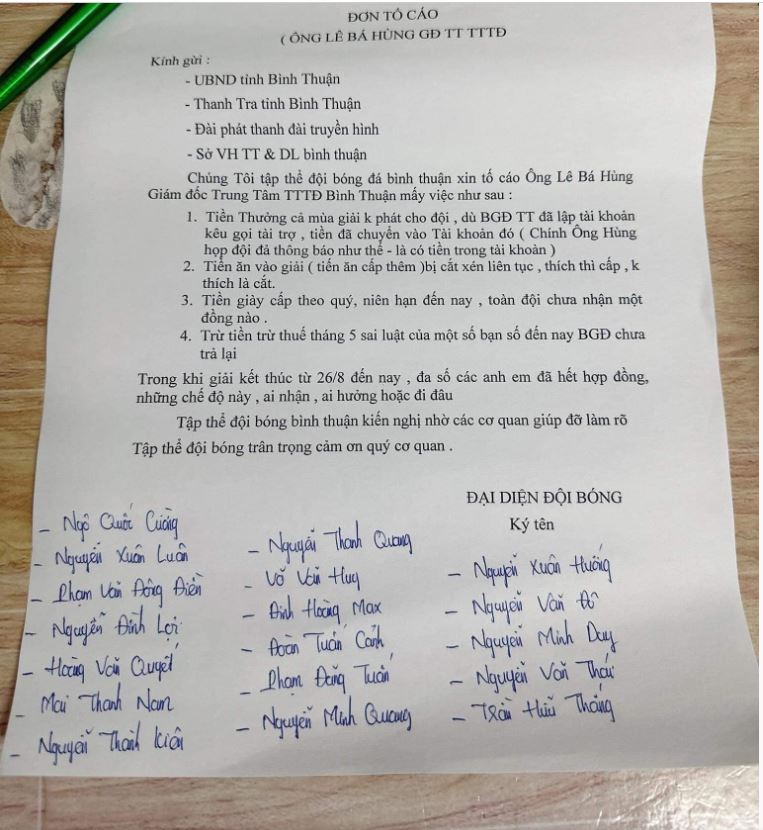 ĐƠN TÔ CÁO
( ÔNG LÊ BÁ HÙNG GĐ TT TTTĐ
Kính gửi :
- UBND tỉnh Bình Thuận
- Thanh Tra tỉnh Bình Thuận
- Đài phát thanh đài truyền hình
- Sở VH TT & DL bình thuận
Chúng Tôi tập thể đội bóng đá bình thuận xin tố cáo Ông Lê Bá Hùng
Giám đốc Trung Tâm TTTĐ Bình Thuận mấy việc như sau :
1. Tiền Thưởng cả mùa giải k phát cho đội , dù BGĐ TT đã lập tài khoản
kêu gọi tài trợ , tiền đã chuyển vào Tài khoản đó ( Chính Ông Hùng
họp đội đả thông báo như thế - là có tiền trong tài khoản )
2. Tiền ăn vào giải ( tiền ăn cấp thêm )bị cắt xén liên tục , thích thì cấp , k
thích là cắt.
3. Tiền giày cấp theo quý, niên hạn đến nay , toàn đội chưa nhận một
đồng nào .
4. Trừ tiền trừ thuế tháng 5 sai luật của một số bạn số đến nay BGĐ chưa
trả lại
Trong khi giải kết thúc từ 26/8 đến nay , đa số các anh em đã hết hợp đồng,
những chế độ này , ai nhận , ai hưởng hoặc đi đâu
Tập thể đội bóng bình thuận kiến nghị nhờ các cơ quan giúp đỡ làm rõ
Tập thể đội bóng trân trọng cảm ơn quý cơ quan .
ĐẠI DIỆN ĐỘI BÓNG
Ký tên
- Ngô Quốc Cường
- Nguyễn Xuân Luân
- Phạm Văn Đông Điền
- Nguyễn Đình Lợi
- Hoàng Văn Quyết
- Mai Thanh Nam
- Nguyễn Thành Kiên
- Nguyễn Thanh Quang
- Võ Văn Huy
- Đinh Hoàng Max
- Đoàn Tuấn Cảnh
- Phạm Đăng Tuấn
- Nguyễn Minh Quang
- Nguyễn Xuân Hướng
- Nguyễn Văn Đô
- Nguyễn Minh Duy
- Nguyễn Văn Thái
- Trần Hữu Thắng